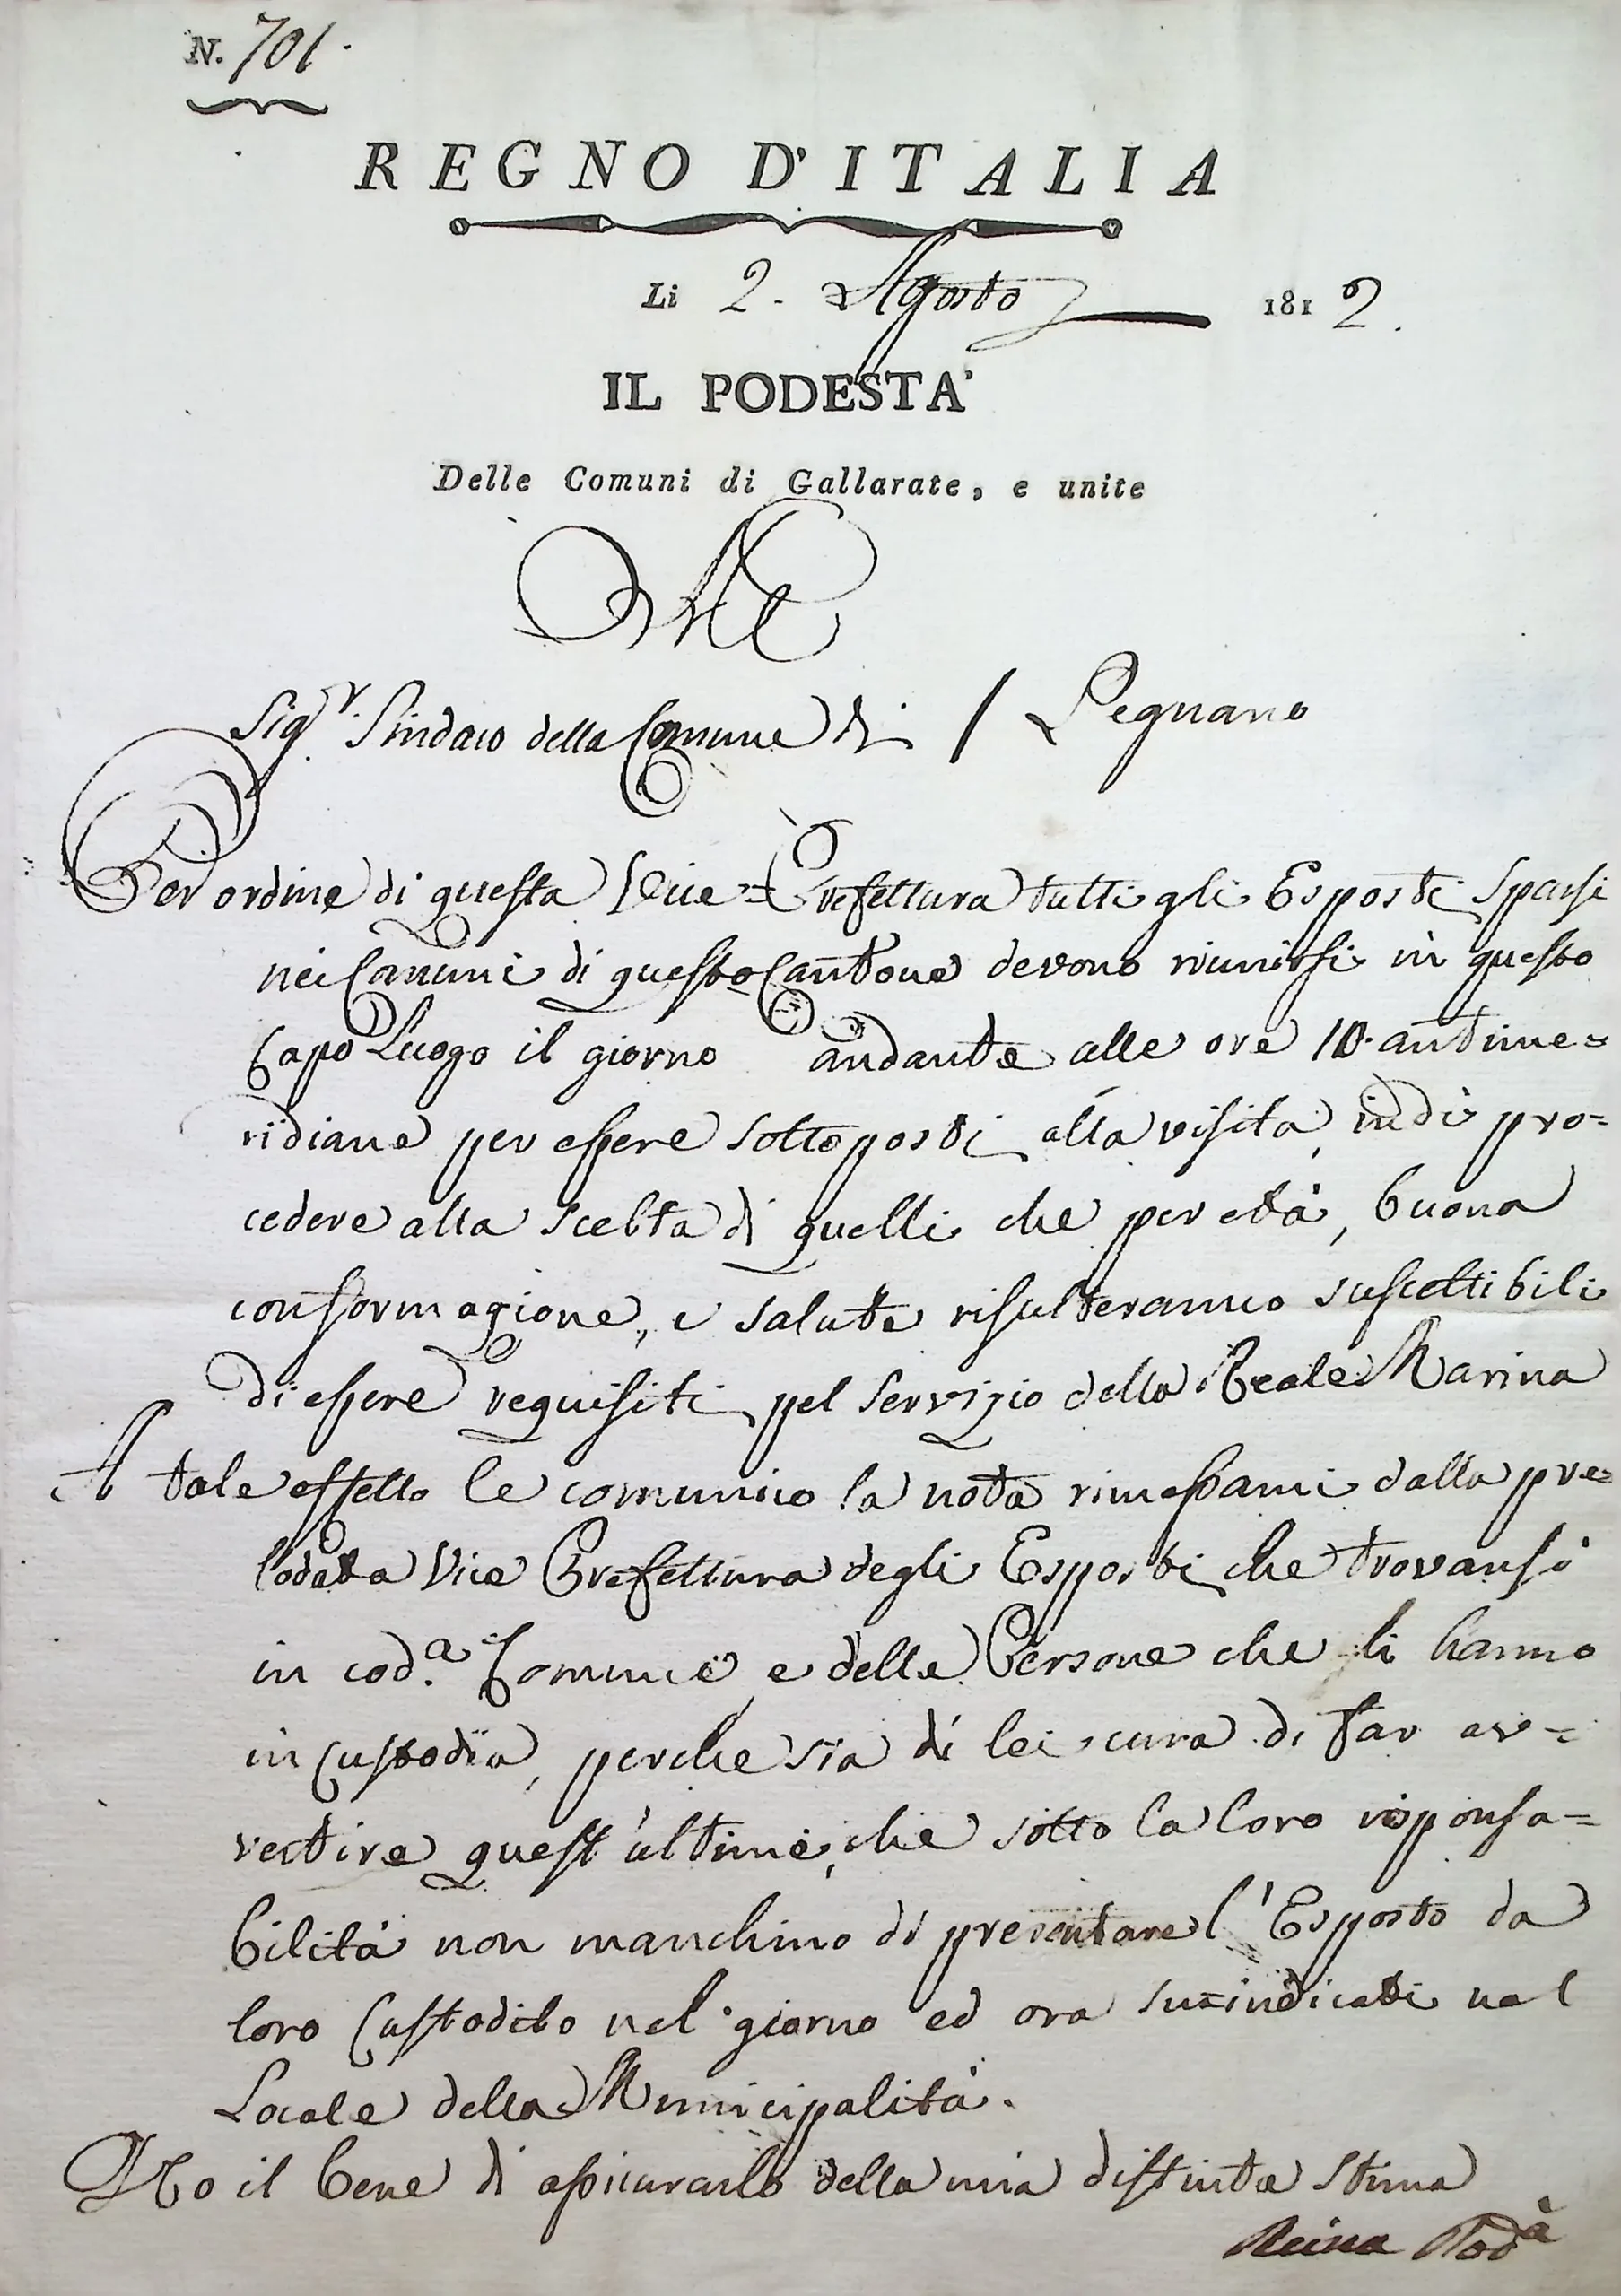 N. 701.
REGNO D'ITALIA
Li 2. Agosto 1812.
IL PODESTA'
Delle Comuni di Gallarate, e unite
Al
Sigr. Sindaco della Comune di / Legnano
Per ordine di questa Vice=Prefettura tutti gli Esposti sparsi
nei Comuni di questo Cantone devono riunirsi in questo
Capo Luogo il giorno andante alle ore 10. antime=
ridiane per essere sottoposti alla visita, indi pro=
cedere alla scelta di quelli che per età, buona
conformazione, e salute risulteranno suscettibili
di essere requisiti pel servizio della Reale Marina
A tale effetto le comunico la nota rimessami dalla pre=
lodata Vice Prefettura degli Esposti che trovansi
in cod.a Comune e delle Persone che li hanno
in Custodia, perche sia di lei cura di far av=
vertire quest'ultime, che sotto la loro risponsa=
bilità non manchino di presentare l'Esposto da
loro Custodito nel giorno ed ora suindicati nel
Locale della Municipalità.
Ho il bene di assicurarlo della mia distinta stima
Reina Podà